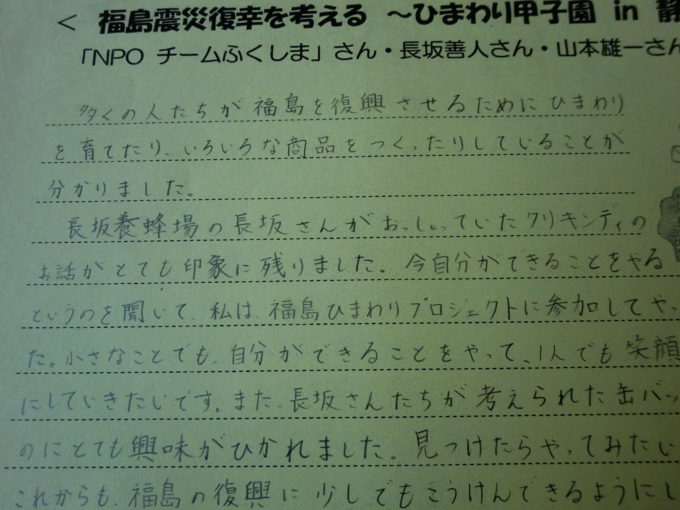 < 福島震災復幸を考える ～ひまわり甲子園 in 静
「NPO チームふくしま」さん・長坂善人さん・山本雄一さん
多くの人たちが福島を復興させるためにひまわり
を育てたり、いろいろな商品をつくったりしていることが
分かりました。
長坂養蜂場の長坂さんがおっしゃっていたクリキンディの
お話がとても印象に残りました。今自分ができることをやる
というのを聞いて、私は、福島ひまわりプロジェクトに参加してやっ
た。小さなことでも、自分ができることをやって、1人でも笑顔
にしていきたいです。また、長坂さんたちが考えられた缶バッ
のにとても興味がひかれました。見つけたらやってみたい
これからも、福島の復興に少しでもこうけんできるようにし